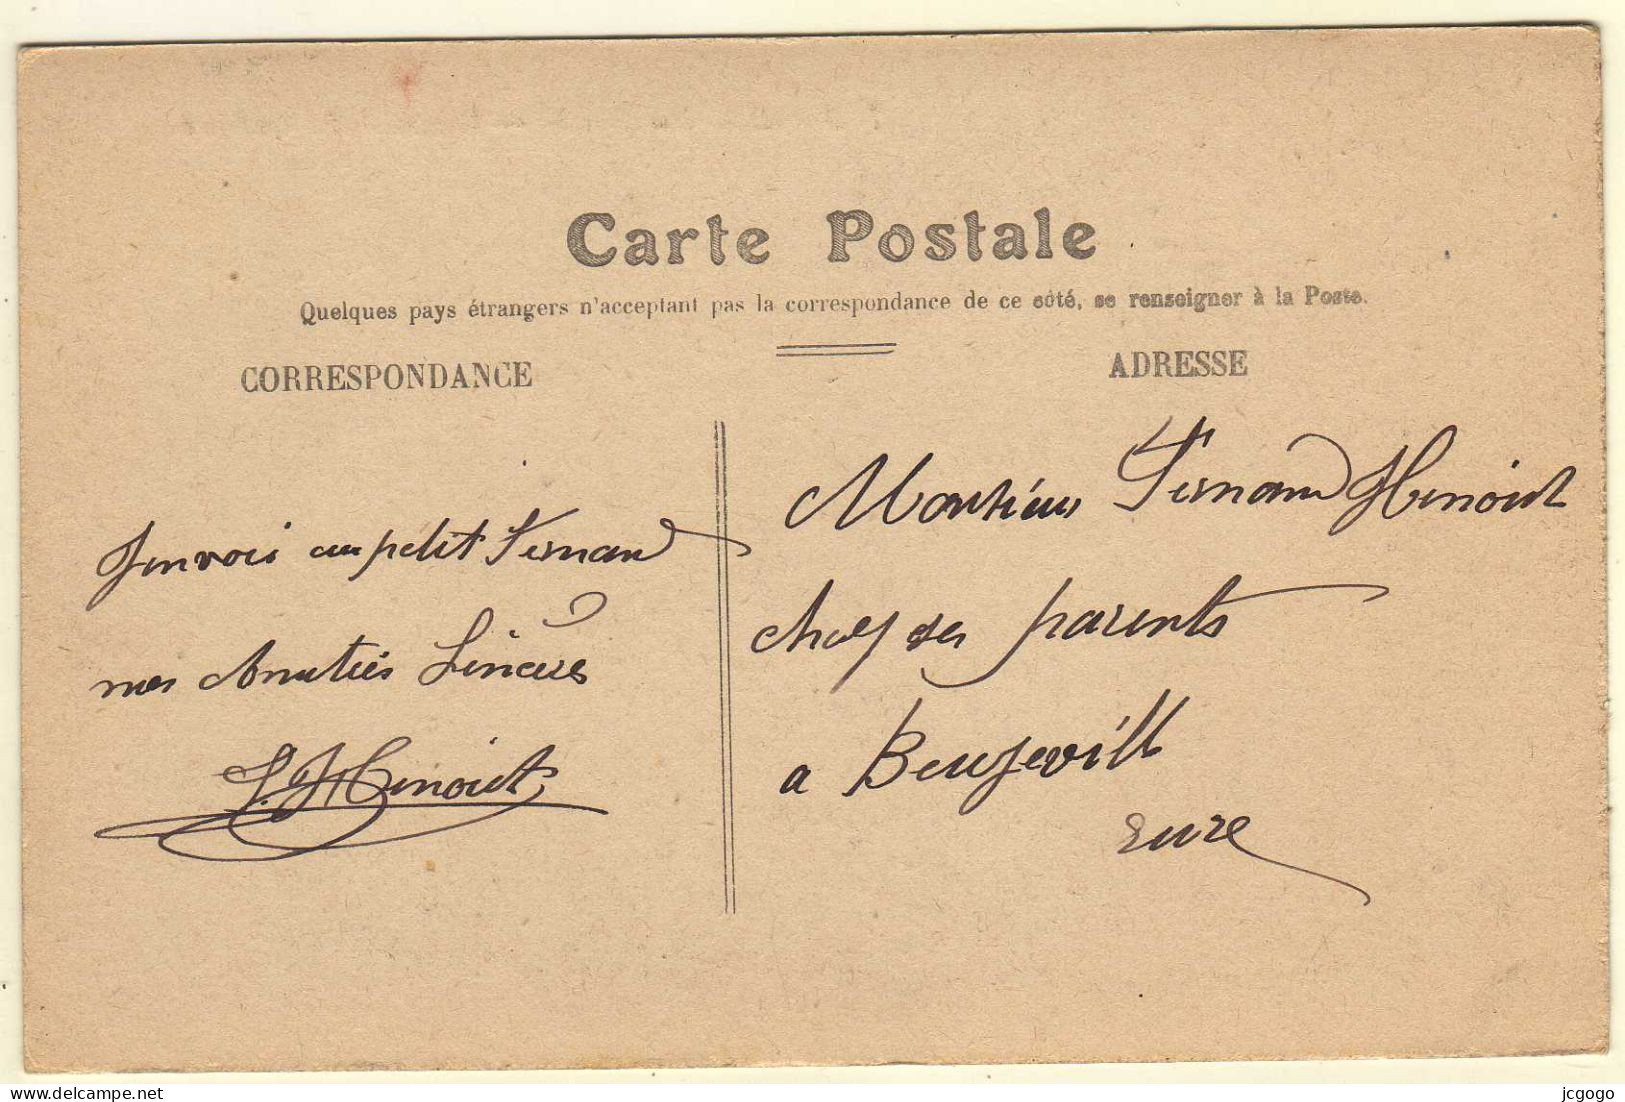 Carte Postale
Quelques pays étrangers n'acceptant pas la correspondance de ce côté, se renseigner à la Poste.
CORRESPONDANCE
ADRESSE
Jenvoi au petit Fernand
mes Amitiés Sincère
Henoist
Monsieur Fernand Henoist
chez ses parents
a Beuzevill
Eure
delcampe.net
jcgogo